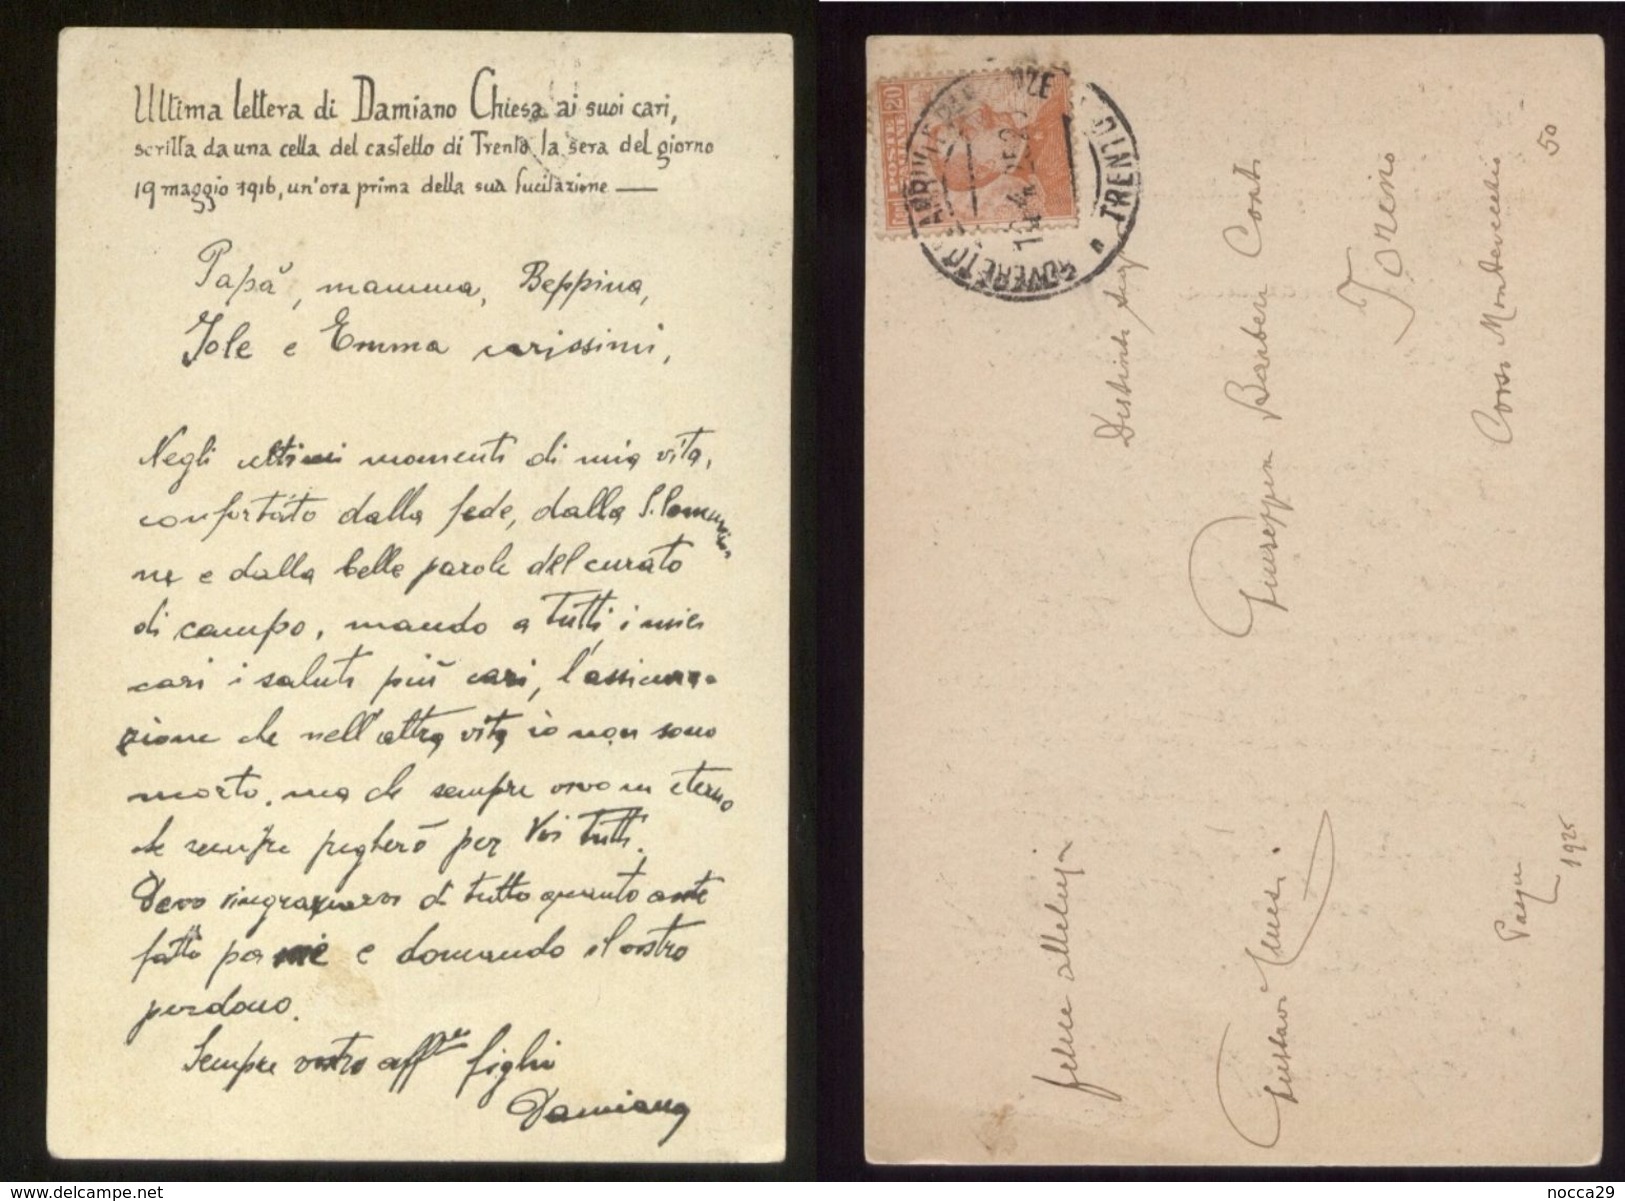 Ultima lettera di Damiano Chiesa ai suoi cari,
scritta da una cella del castello di Trento la sera del giorno
19 maggio 1916, un'ora prima della sua fucilazione —
Papà, mamma, Beppina,
Jole e Emma carissimi,
Negli ultimi momenti di mia vita,
confortato dalla fede, dalla S. Comunion
ne e dalla belle parole del curato
di campo, mando a tutti i miei
cari i saluti più cari, l'assicura-
zione che nell'altra vita io non sono
morto, ma che sempre vivo in eterno
che sempre pregherò per Voi tutti.
Devo ringraziarvi di tutto quanto avete
fatto per me e domando il vostro
perdono.
Sempre vostro aff.mo figlio
Damiano
POSTE ITALIANE
20
ROVERETO
TRENTO
Distinta
Giuseppina Barberi Conti
Torino
Corso Montevecchio 50
felice alleluja
Gustavo
Pasqua
1925
nocca29
www.delcampe.net